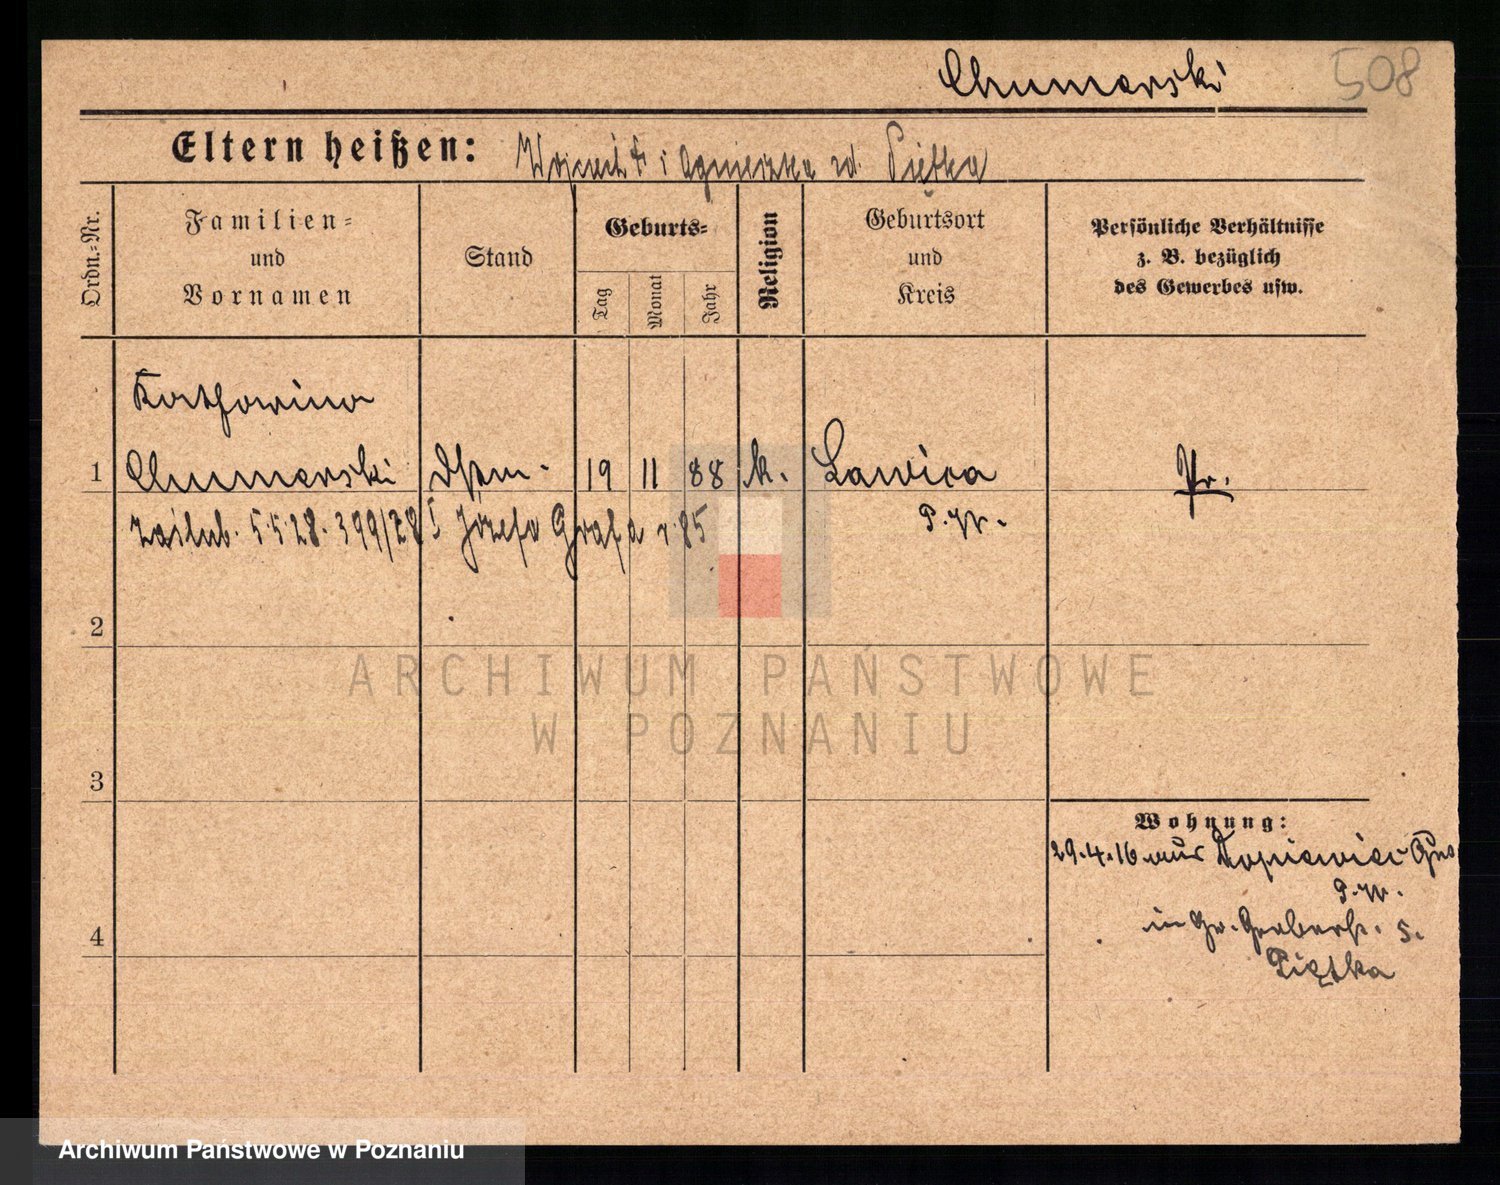 Chumerski
508
Eltern heißen: Wojciech † i Agnieszka zd. Piętka
Ordn.-Nr.
Familien-
und
Vornamen
Stand
Geburts-
Tag
Monat
Jahr
Religion
Geburtsort
und
Kreis
Persönliche Verhältnisse
z. B. bezüglich
des Gewerbes usw.
Katharina
1 Chumerski 19 11 88 k. Lawica Pr.
zaślub. 5.5.28. 399/28 Józefa Grafa r. 85 P.W.
2
3
4
Wohnung:
29.4.16 aus Dopiewiec
P.W.
in Gr. 5.
Piętka
ARCHIWUM PAŃSTWOWE
W POZNANIU
Archiwum Państwowe w Poznaniu